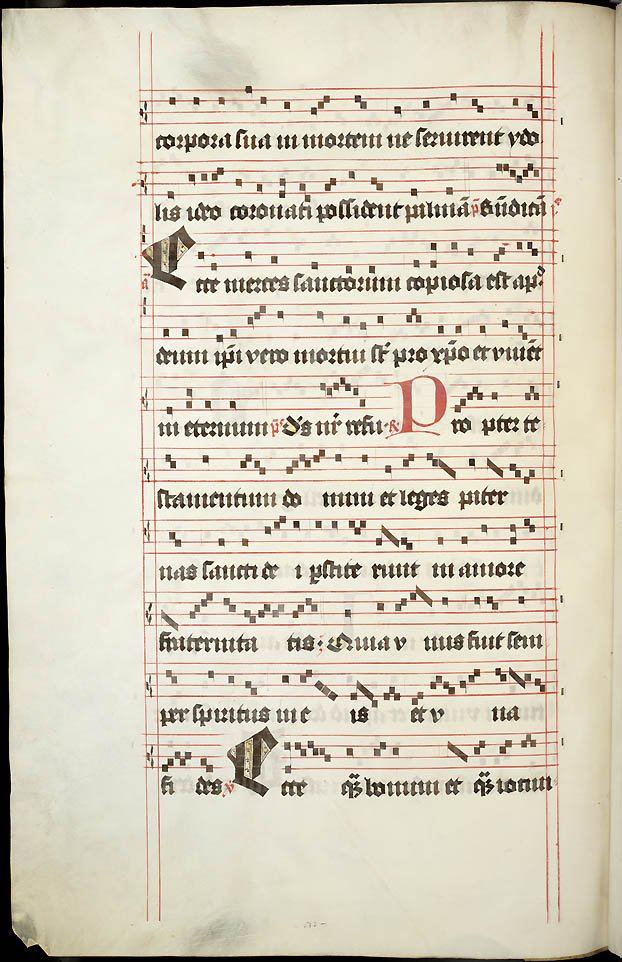 corpora sua in mortem ne seruirent ydo
lis ideo coronati possident palmā p̄s Bn̄dictū
a Ecce merces sanctorum copiosa est apꝰ
deum ip̄i vero mortui st̄ pro xp̄o et viuēt
in eternum p̄s Ds̄ nr̄ refu R Pro pter te
stamentum do mini et leges pater
nas sancti de i p̱stite runt in amore
fraternita tis. Quia v nus fuit sem
per spiritus in e is et v na
fi des v̄ Ecce q̄ꝫ bonum et q̄ꝫ iocun